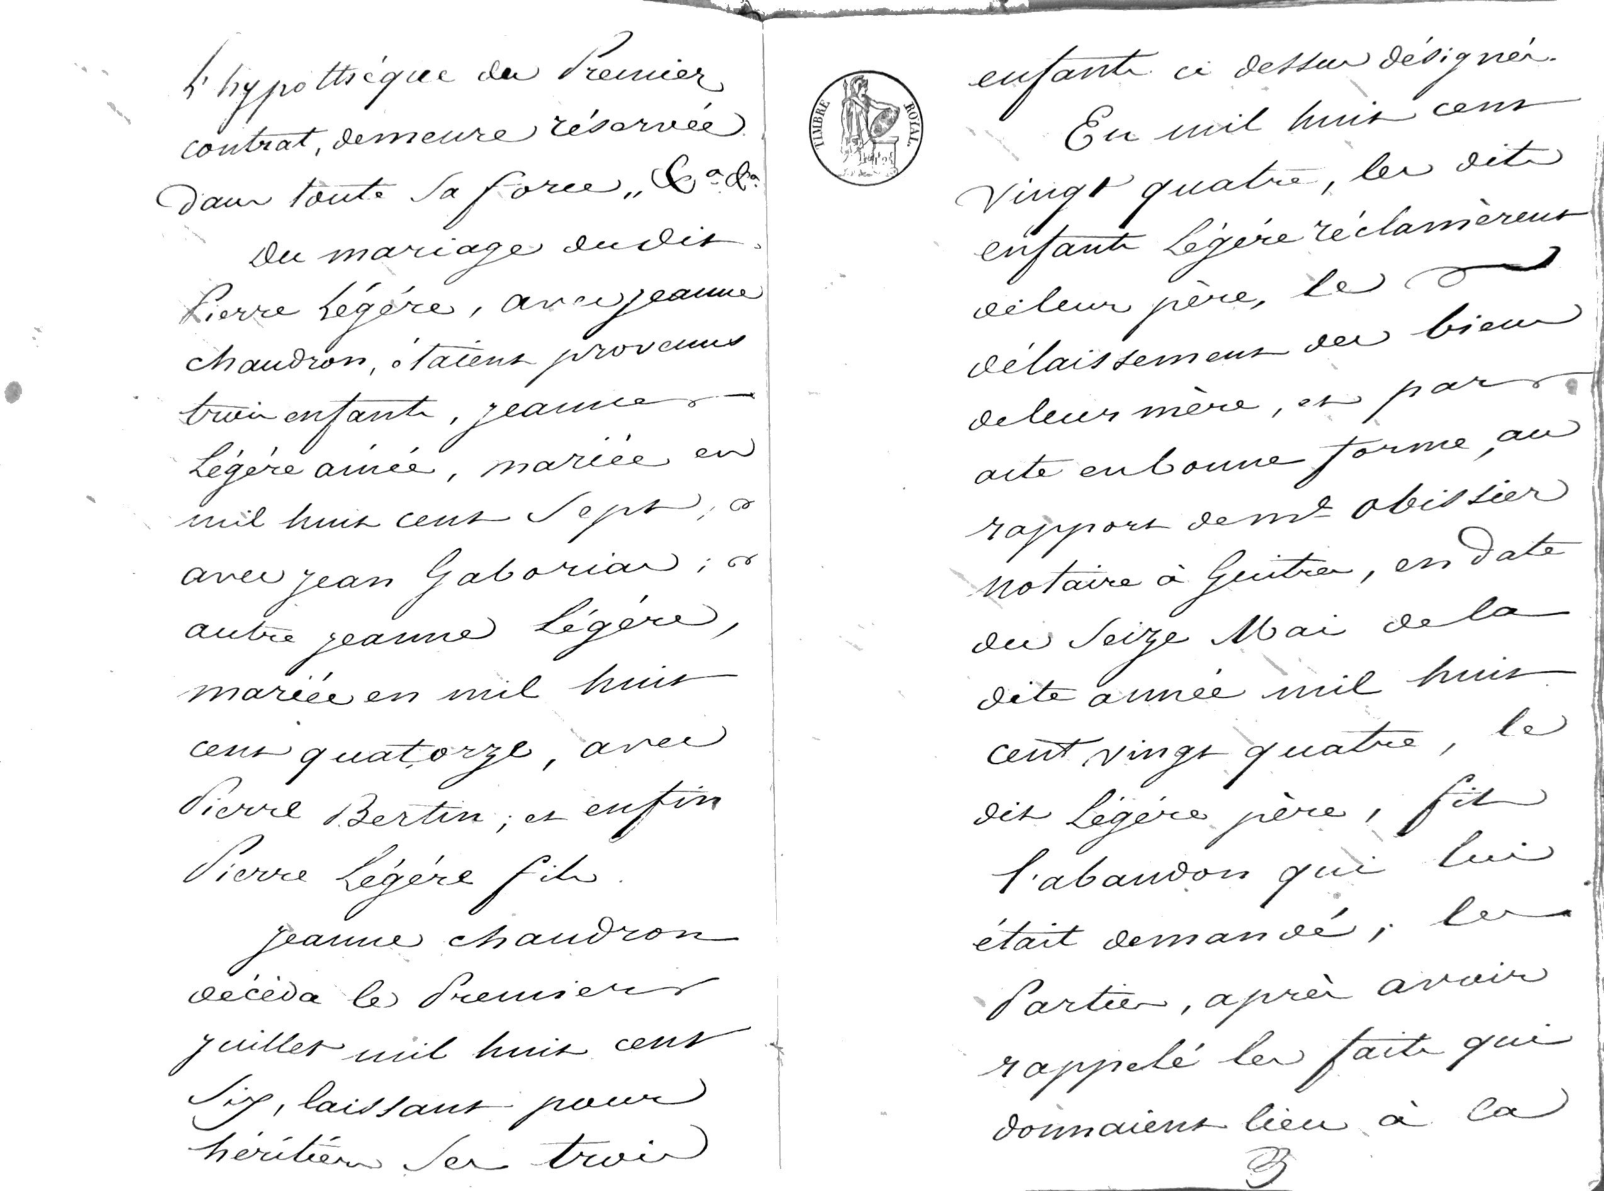 l'hypothéque du Premier
contrat, demeure réservée
dans toute sa force ,, &a. &a.
Du mariage du dit
Pierre Légére, avec jeanne
chaudron, étaient provenus
trois enfants, jeanne
Légére ainée, mariée en
mil huit cent sept,
avec jean Gaboriau ;
autre jeanne Légére,
mariée en mil huit
cent quatorze, avec
Pierre Bertin ; et enfin
Pierre Légére fils.
jeanne chaudron
décéda le Premier
juillet mil huit cent
six, laissant pour
héritiers ses trois
TIMBRE ROYAL
enfants ci dessus désignés.
En mil huit cent
vingt quatre, les dits
enfants Légére réclamèrent
de leur père, le
délaissement des biens
de leur mère, et par
acte en bonne forme, au
rapport de Me. obissier
notaire à Guitres, en date
du seize Mai de la
dite année mil huit
cent vingt quatre, le
dit Légére père, fit
l'abandon qui lui
était demandé ; les
Parties, après avoir
rappelé les faits qui
donnaient lieu à ca